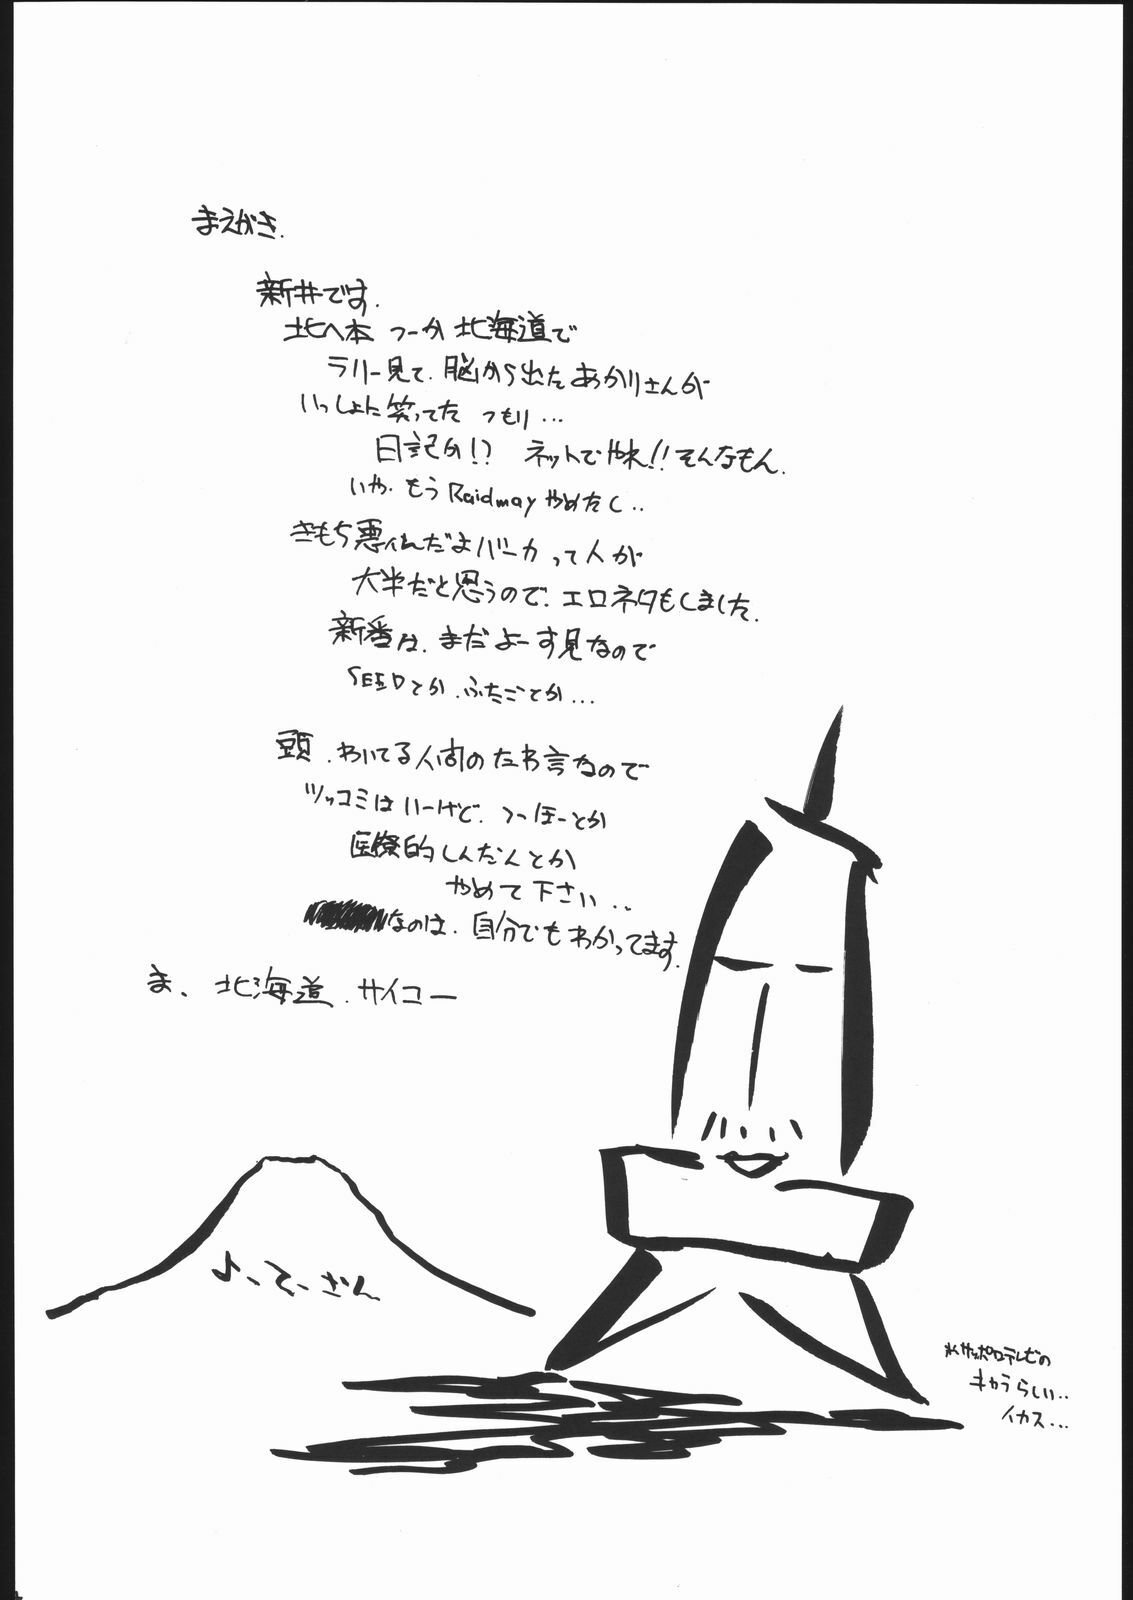 まえがき.
新井です.
北へ本 つーか 北海道で
ラリー見て、脳から出たあかりさんが
いっしょに笑ってた つもり…
日記か!? ネットでやれ!!そんなもん.
いや. もう Raidmay やめたし..
きもち悪ィんだよバーカって人が
大半だと思うので、エロネタもしました.
新番は、まだよーす見なので
SEEDとか、ふたごとか...
頭、わいてる人間のたわ言なので
ツッコミはいーけど、つーほーとか
医療的しんだんとか
やめて下さい..
なのは、自分でもわかってます.
ま、北海道、サイコー
よーてーさん
※サッポロテレビの
キャラらしい..
イカス...